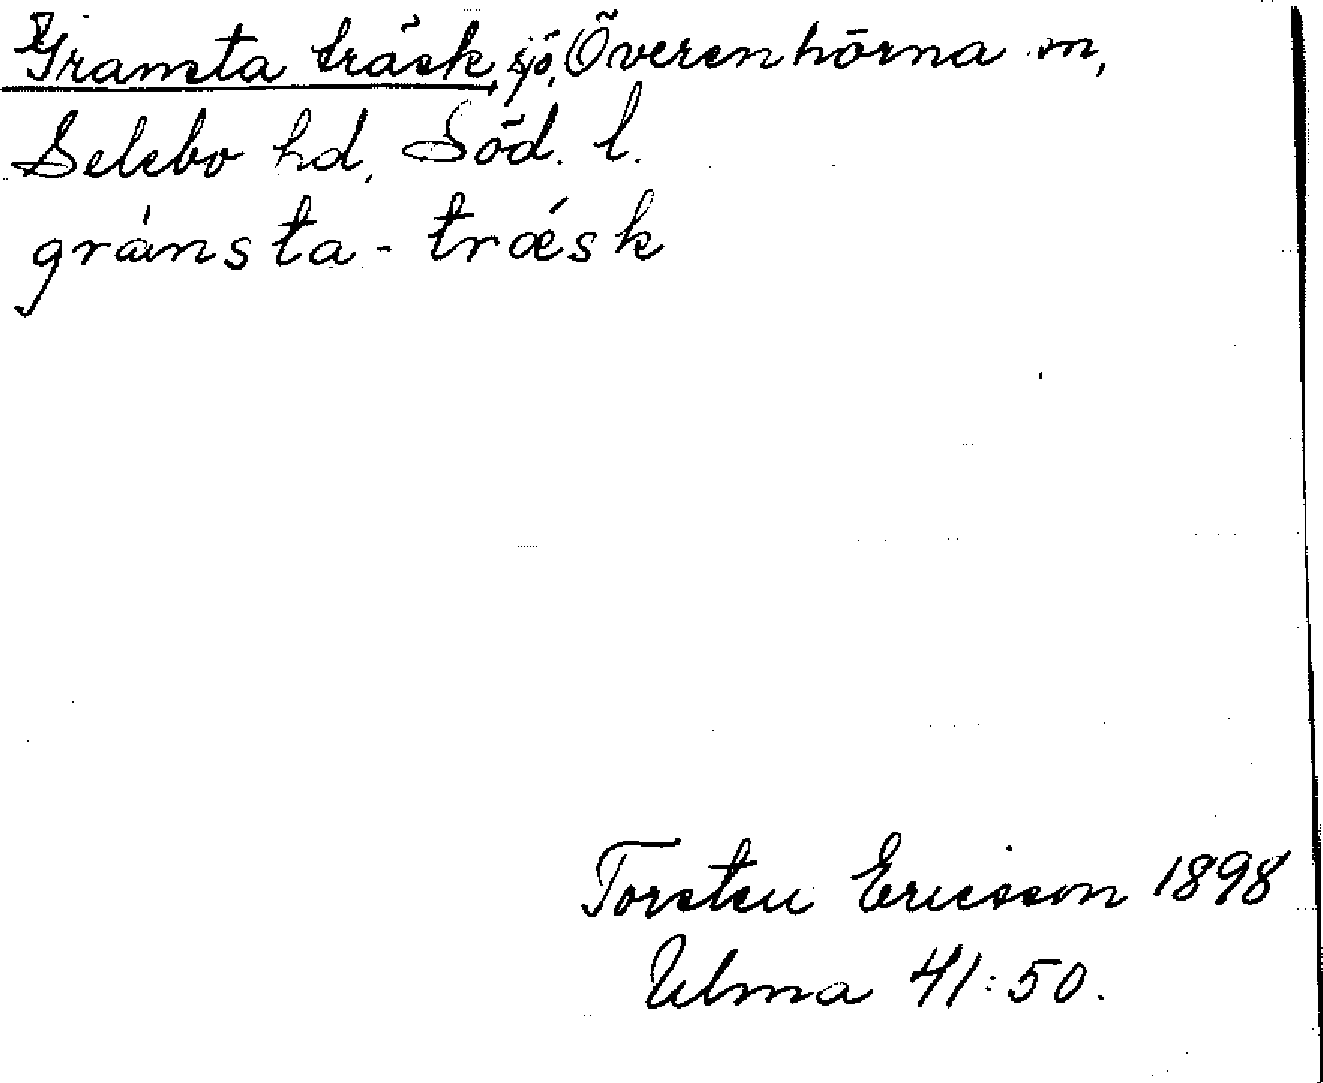 Gramsta träsk, sjö, Överenhörna sn,
Selebo hd, Söd. l.
gránsta-trǽsk
Torsten Ericsson 1898
Ulma 41:50.